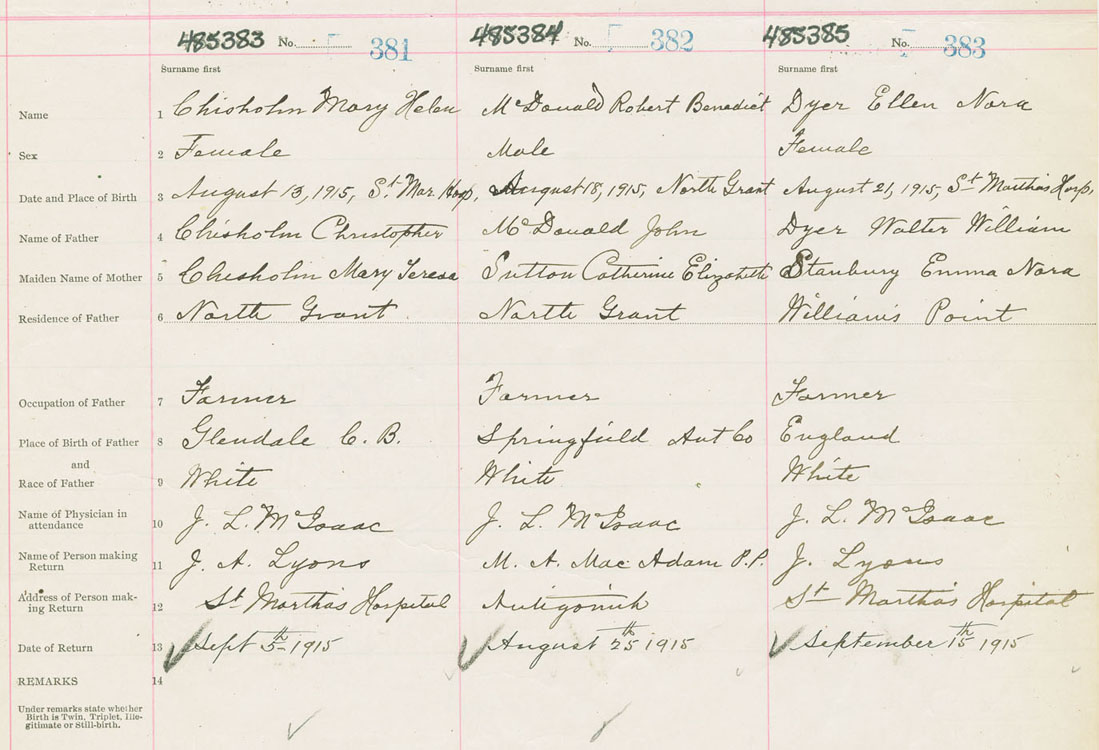 485383 No. 381 485384 No. 382 485385 No. 383
Surname first Surname first Surname first
Name 1 Chisholm Mary Helen McDonald Robert Benedict Dyer Ellen Nora
Sex 2 Female Male Female
Date and Place of Birth 3 August 13, 1915, St. Mar. Hosp. August 18, 1915, North Grant August 21, 1915, St Martha's Hosp.
Name of Father 4 Chisholm Christopher McDonald John Dyer Walter William
Maiden Name of Mother 5 Chisholm Mary Teresa Sutton Catherine Elizabeth Stanbury Emma Nora
Residence of Father 6 North Grant North Grant William's Point
Occupation of Father 7 Farmer Farmer Farmer
Place of Birth of Father 8 Glendale C. B. Springfield Ant Co England
and
Race of Father 9 White White White
Name of Physician in
attendance 10 J. L. McIsaac J. L. McIsaac J. L. McIsaac
Name of Person making
Return 11 J. A. Lyons M. A. MacAdam P.P. J. Lyons
Address of Person mak-
ing Return 12 St Martha's Hospital Antigonish St Martha's Hospital
Date of Return 13 Sept 5th 1915 August 25th 1915 September 15th 1915
REMARKS 14
Under remarks state whether
Birth is Twin, Triplet, Ille-
gitimate or Still-birth.